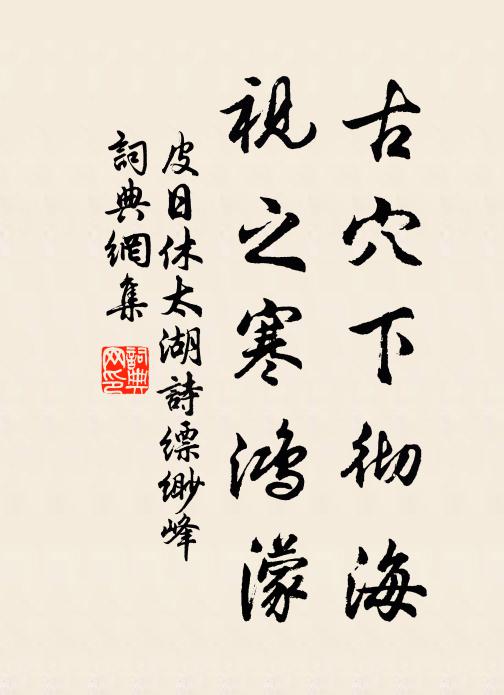 古穴下彻海
视之寒鸿濛
皮日休太湖詩縹緲峰
詞典網集
詞典网印